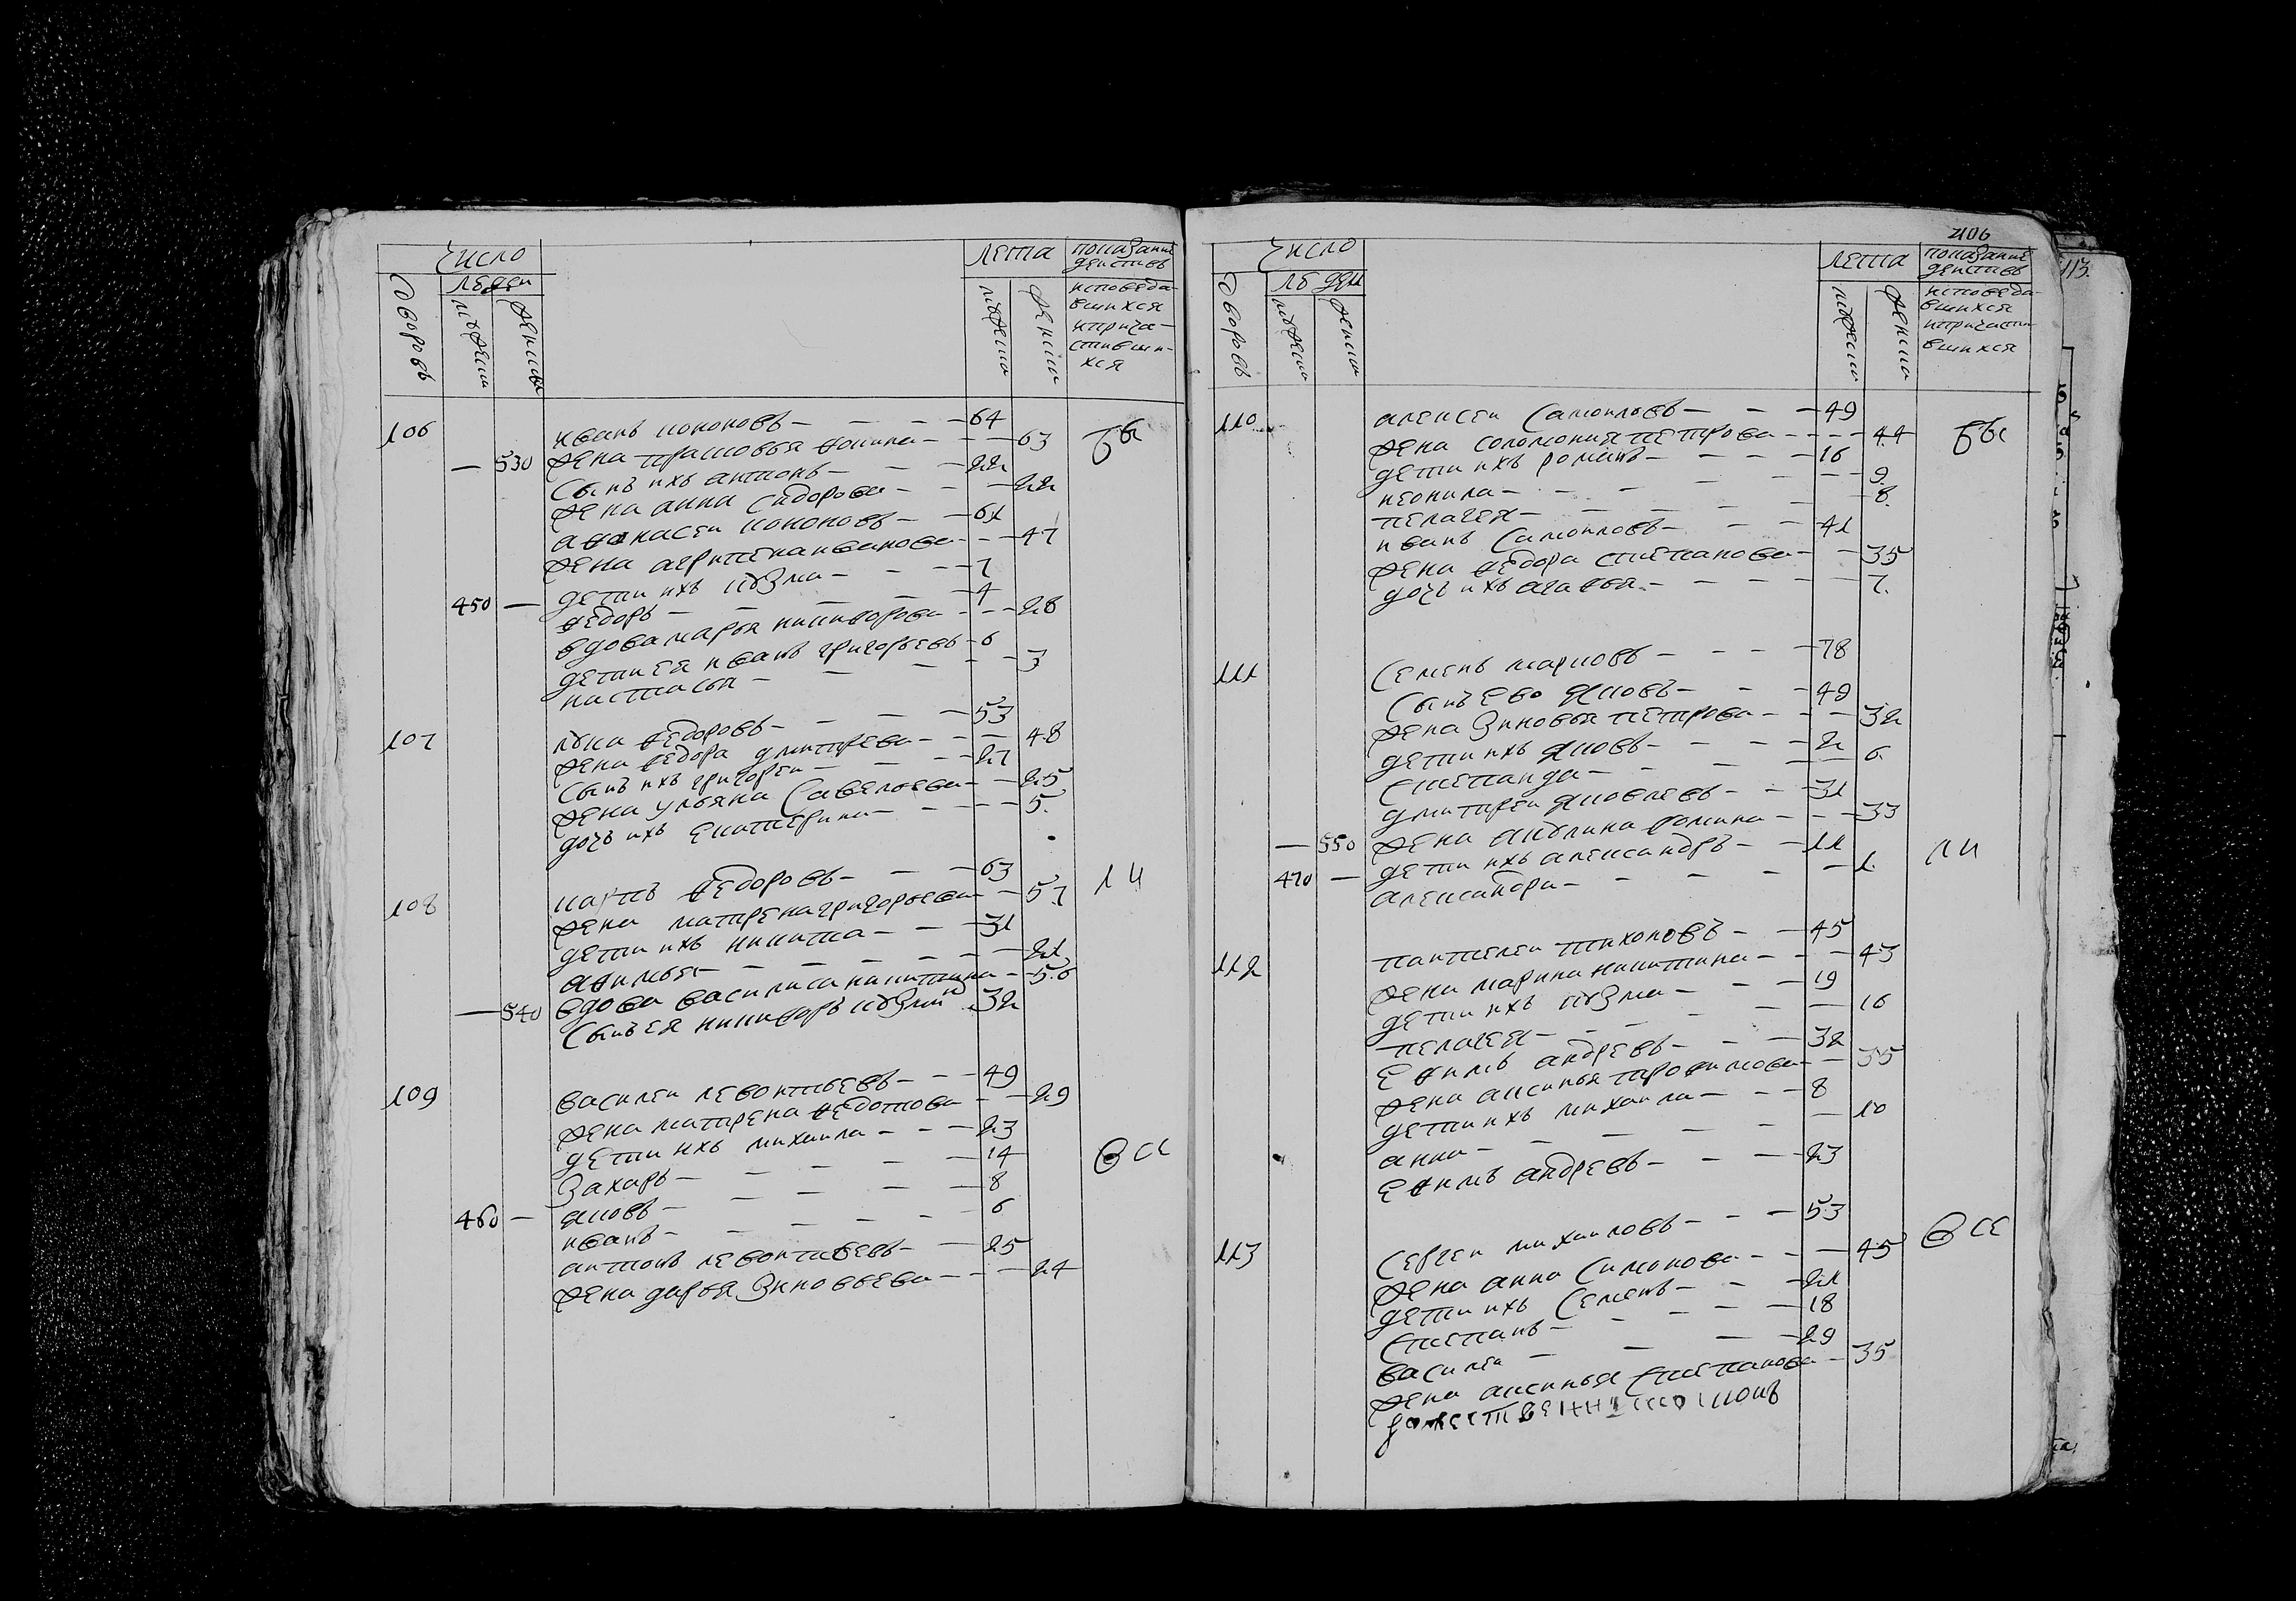 Число
Людеи
Дворовъ
мужеска
женска
лета
мужеска
женска
показание
деиствъ
исповеда-
вшихся
и прича-
стивши-
хся
106 иванъ кононовъ 64
530 жена прасковья фокина 63
сынъ ихъ антонъ 22
жена анна сидорова 22
афонасеи кононовъ 61
жена агрипена иванова 47
дети ихъ кузма 7
450 федоръ 4
вдова марья никифорова 28
дети ея иванъ григорьевъ 6
настасья 3
107 лука федоровъ 53
жена федора дмитрева 48
сынъ ихъ григореи 27
жена ульяна савельева 25
дочь ихъ екатерина 5
108 карпъ федоровъ 63
жена матрена григорьева 57
дети ихъ никита 31
афимья 21
540 вдова василиса никитина 56
сынъ ея никифоръ кузмин 32
109 василеи левонтьевъ 49
жена матрена федотова 29
дети ихъ михаила 23
захаръ 14
яковъ 8
460 иванъ 6
антонъ левонтьевъ 25
жена дарья зиновьева 24
406
Число
Людеи
Дворовъ
мужеска
женска
лета
мужеска
женска
показание
деиствъ
исповеда-
вшихся
и причасти-
вшихся
110 алексеи самоиловъ 49
жена соломония петрова 44
дети ихъ романъ 16
неонила 9
пелагея 8
иванъ самоиловъ 41
жена федора степанова 35
дочь ихъ агафья 7
111 семенъ марковъ 78
сынъ ево яковъ 49
жена зиновья петрова 32
дети ихъ яковъ 2
степанида 6
дмитреи яковлевъ 31
550 жена акулина фомина 33
470 дети ихъ александръ 11
александра 1
112 пантелеи тихоновъ 45
жена марина никитина 43
дети ихъ кузма 19
пелагея 16
ефимъ андреевъ 32
жена аксинья трофимова 35
дети ихъ михаила 8
анна 10
ефимъ андреевъ 23
113 сергеи михаиловъ 53
жена анна симонова 45
дети ихъ семенъ 21
степанъ 18
василеи 29
жена аксинья степанова 35
113